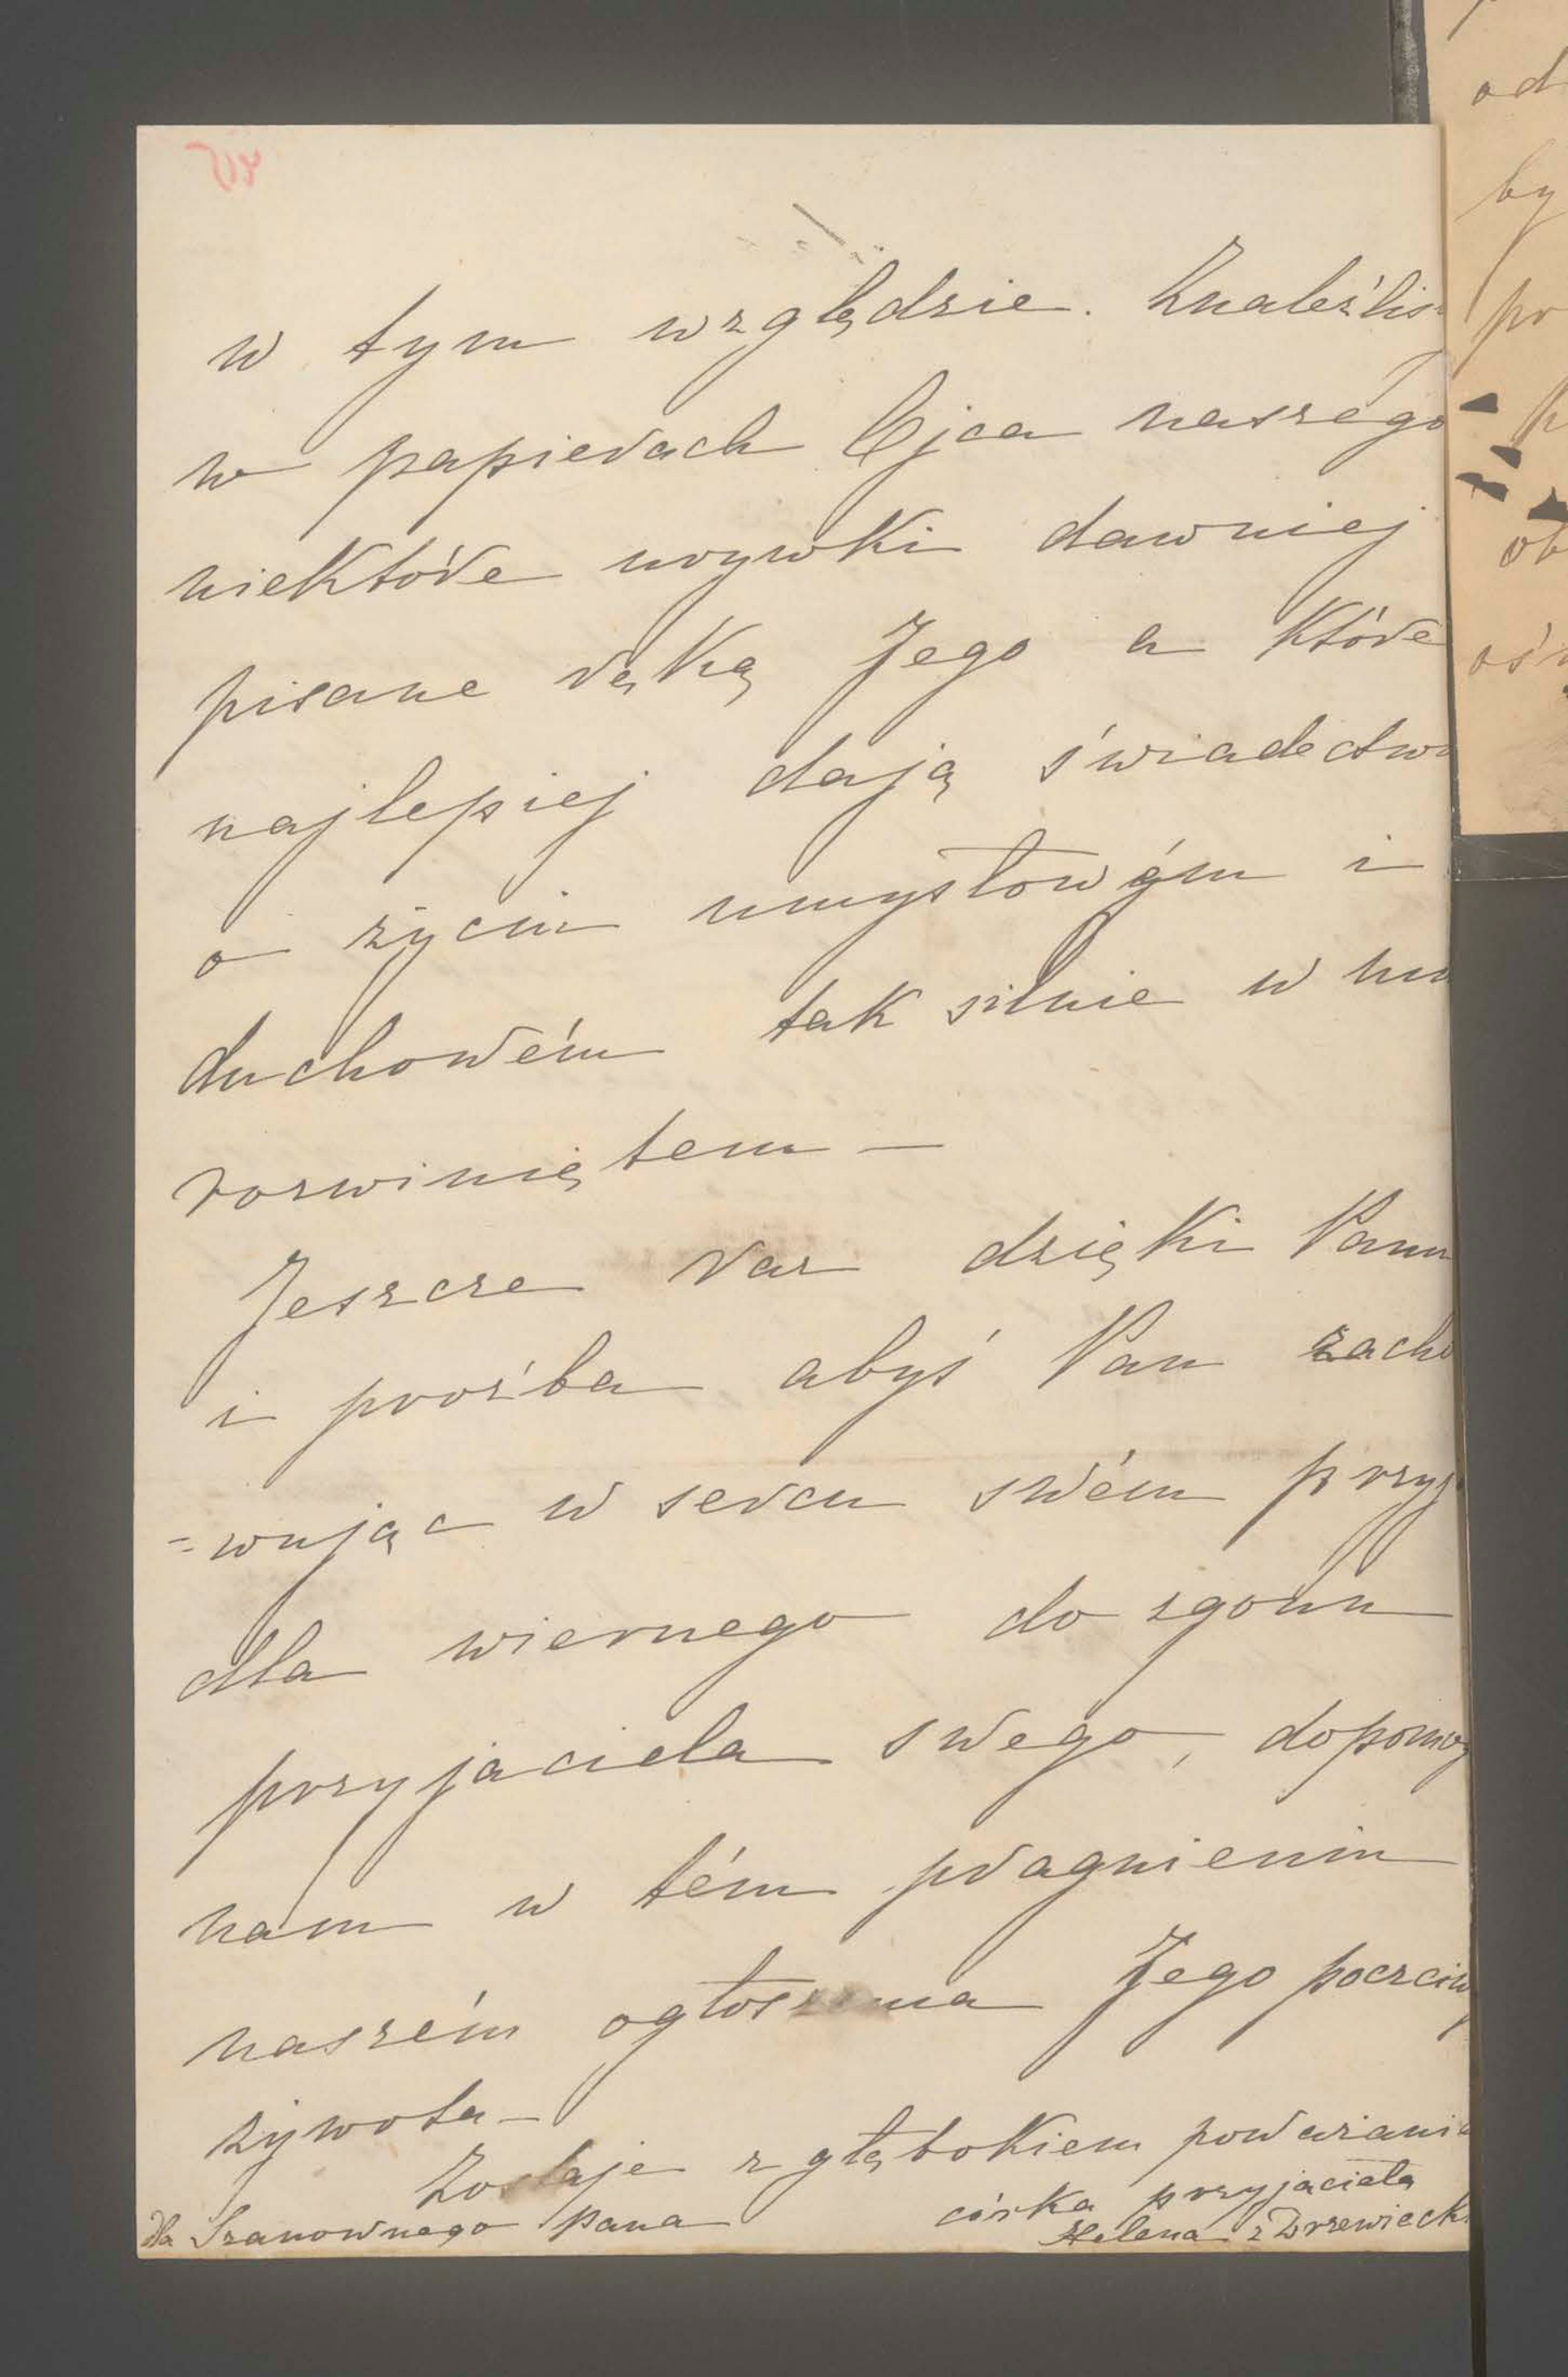 w tym względzie. Znaleźliś
w papierach Ojca naszego
niektóre urywki dawniej
pisane ręką Jego a które
najlepiej dają świadectwo
o życiu umysłowém i
duchowém tak silnie w
rozwiniętem —
Jeszcze raz dzięki Panu
i prośba abyś Pan zacho
=wując w sercu swém przyj
dla wiernego do zgonu
przyjaciela swego, dopomóg
nam w tém pragnieniu
naszém ogłoszenia Jego poczciw
żywota —
Zostaje z głębokiem poważanie
dla Szanownego Pana
córka przyjaciela
Helena z Drzewieck
od
by
pr
ob